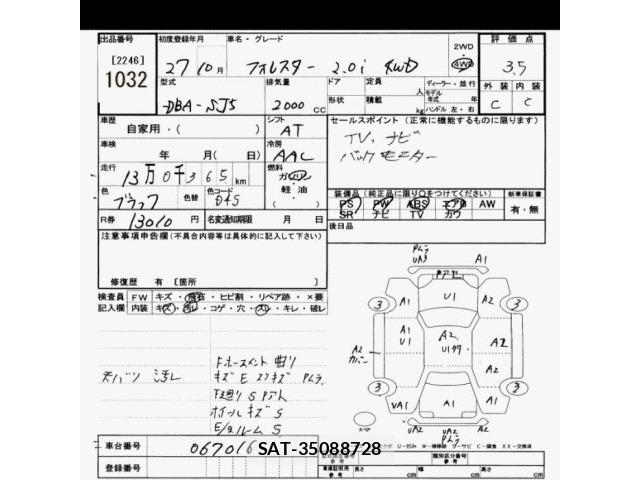 出品番号 初度登録年月 車名・グレード 2WD 評価点
[2246] 27/10月 フォレスター 2.0i 4WD 4WD 3.5
1032 型式 排気量 ドア 定員 ディーラー・並行 外装 内装
人 モデル年式 年
DBA-SJ5 2000 CC 形状 積載 kg ハンドル 左・右 C C
車歴 シフト セールスポイント(正常に機能するものに限ります)
自家用・( ) AT TV,ナビ
車検 冷房 バックモニター
年 月(日) AAC
走行 燃料
13万0千365km ガソリン
軽・油
色 色替 色コード 装備品(純正品に限り○をつけてください) 新車保証書
ブラック D4S PS PW ABS エアB AW 有・無
SR ナビ TV カワ
R券 13010円 名変通知期限 月 日 後日品
注意事項申告欄(不具合内容等は具体的に記入して下さい)
修復歴 有 [箇所 ]
検査員 FW キズ・飛石・ヒビ割・リペア跡・×要
記入欄 内装 キズ・汚レ・コゲ・穴・スレ・キレ・破レ
Fホースメント曲り
天バリ 汚レ キズE スリキズ Pムラ
下廻りSアト
ホイールキズS
E/gルームS
Pムラ
UA3 A1
A1 U1 A1
3 3
A1 U1 A2 U1 A2
A2 カバー
A2
3 3
UA1 A1 A1
UA2 UA2
Pムラ
車台番号 067016 SAT-35088728
登録番号 車車証明用参考 長さ cm 幅 cm 高さ cm